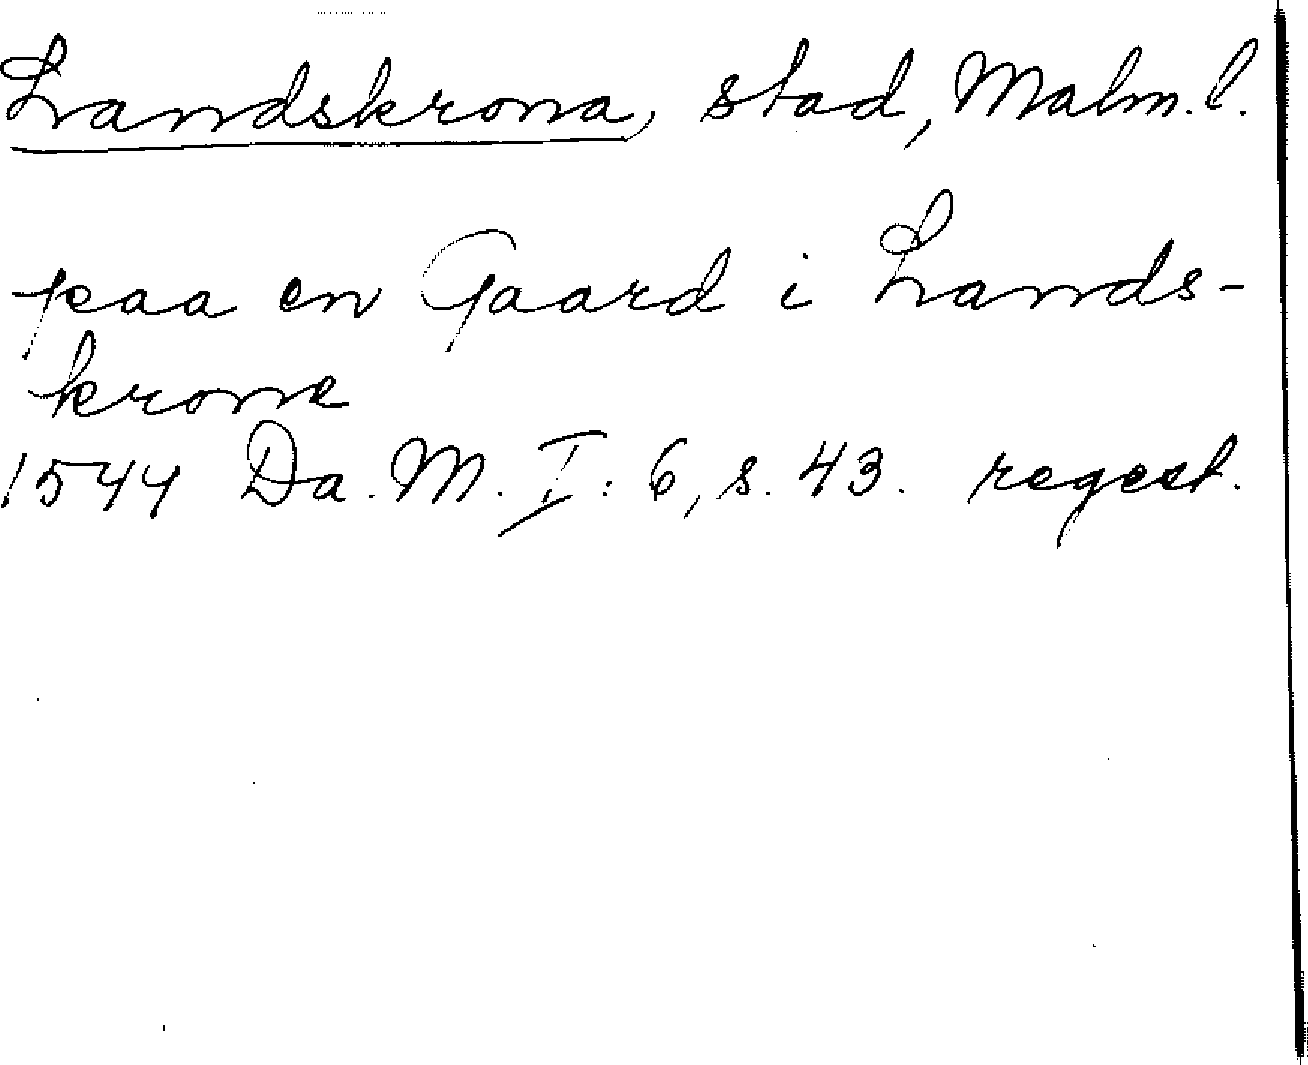 Landskrona, stad, Malm. l.
paa en Gaard i Lands-
krone
1544 Da. M. I: 6, s. 43. regest.